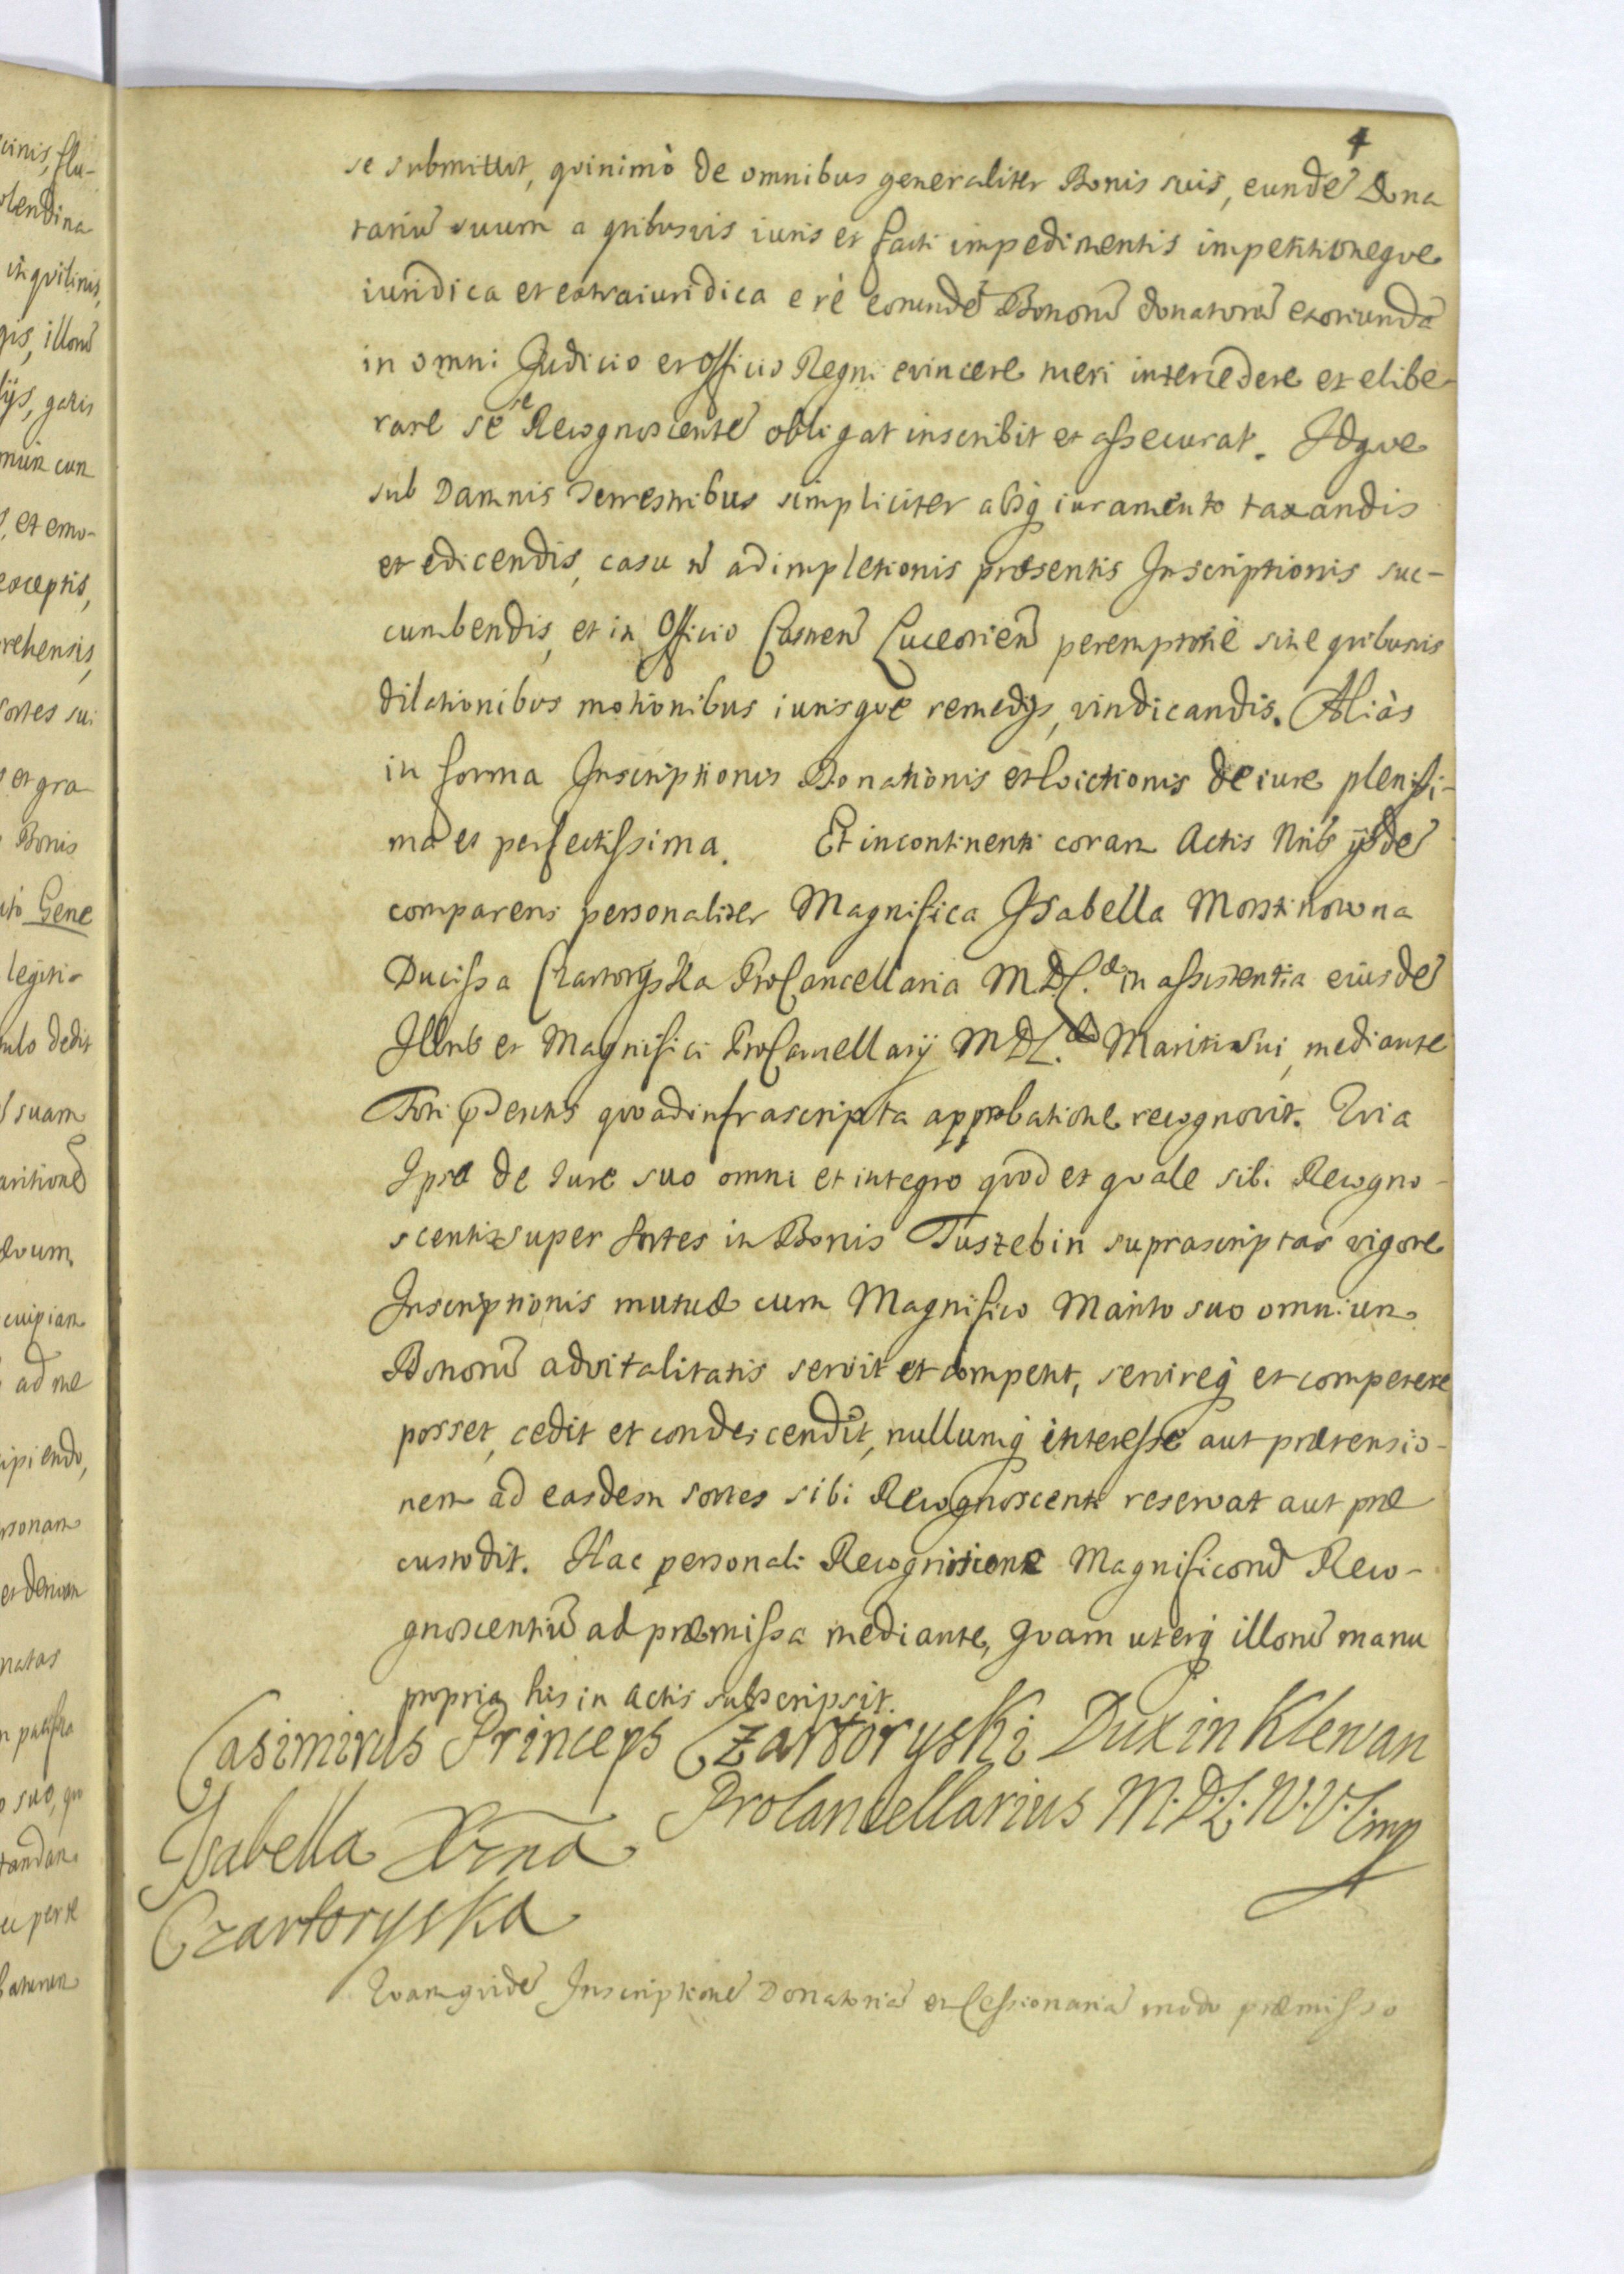 4
cinis, flu-
olendina
inquilinis,
gis, illorũ
et emo-
exceptis,
rehensis,
sortes sui
et gra
Bonis
Gene
legiti-
dedit
suam
ad me
ipiendo,
rsonam
natas
suo, qu
se submittit, quinimò de omnibus generaliter Bonis suis, eundẽ Dona
tariũ suum a quibusvis iuris et facti impedimentis impetitioneque
iuridica et extraiuridica e rè eorundẽ Bonorũ donatorũ exoriundã
in omni Judicio et Officio Regni evincere tueri intercedere et elibe-
rare se se Recognoscentẽ obligat inscribit et assecurat. Idque
sub Damnis Terrestribus simpliciter absq̃ iuramento taxandis
et edicendis, casu ñ adimpletionis præsentis Inscriptionis suc-
cumbendis, et in Officio Castreñ Luceorieñ peremptoriè sine quibusvis
dilationibus motionibus iurisque remedijs, vindicandis. Aliàs
in forma Inscriptionis Donationis et Evictionis de iure plenissi-
ma et perfectissima. Et incontinenti coram Actis Nris ijsdẽ
comparens personaliter Magnifica Isabella Morstinowna
Ducissa Czartoryska ProCancellaria M.D.L. in assistentia eiusdẽ
Illris et Magnifici ProCancellarij M.D.L. Mariti sui, mediante
Fori p̃dentis quoad infrascripta approbatione recognovit. Quia
Ipsa de Iure suo omni et integro quod et quale sibi Recogno-
scenti super Sortes in Bonis Tuszebin suprascriptas vigore
Inscriptionis mutuæ cum Magnifico Marito suo omnium
Bonorũ advitalitatis servit et competit, servireq̃ et competere
posset, cedit et condescendit, nullumq̃ interesse aut prætensio-
nem ad easdem sortes sibi Recognoscenti reservat aut præ
custodit. Hac personali Recognitione Magnificorũ Reco-
gnoscentiũ ad præmissa mediante, quam uterq̃ illorũ manu
propria his in Actis subscripsit.
Casimirus Princeps Czartoryski Dux in Klewan
ProCancellarius M.D.L.
Isabella Xżna
Czartoryska
Quamquidẽ Inscriptionẽ Donatoriã et Cessionariã modo præmisso